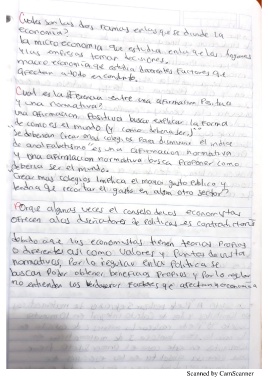 Cuales son las dos ramas en las que se divide la
economía?
la micro economía que estudia en los que los hogares
y las empresas toman decisiones.
macro economía que estudia diferentes factores que
afectan a todo en conjunto.
Cual es la diferencia entre una afirmacion Positiva
y una normativa?
una afirmación Positiva busca explicar la forma
de como es el mundo (y como
se deberian crear mas colegios Para disminuir el indice
de analfabetismo es una afirmación normativa
y una afirmación normativa busca Proponer como
deberia ser el mundo.
Crear mas colegios implica el mayor gasto publico y
tendra que recortar el gasto en algun otro sector?
Porque algunas veces el consejo de los economistas
ofrecen a los diseñadores de Politicas es contradictorio
debido a que los economistas tienen teorias Propias
o diferentes asi como valores y Puntos de vista
normativos, Por lo regular en la Politica se
buscan Poder obtener beneficios Propios y Por lo regular
no entienden los factores que afectan a economia
Scanned by CamScanner